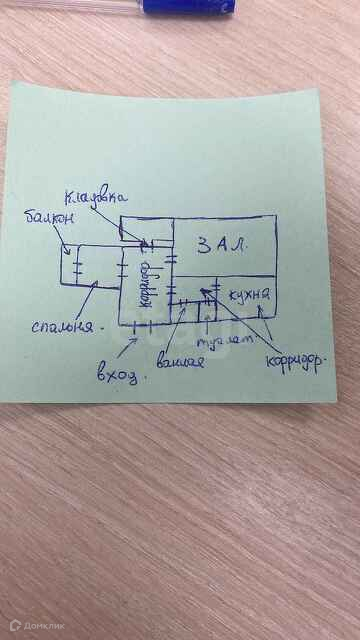 кладовка
балкон
ЗАЛ.
коридор
кухня
спальня.
туалет
ванная
корридор.
вход.
Домклик